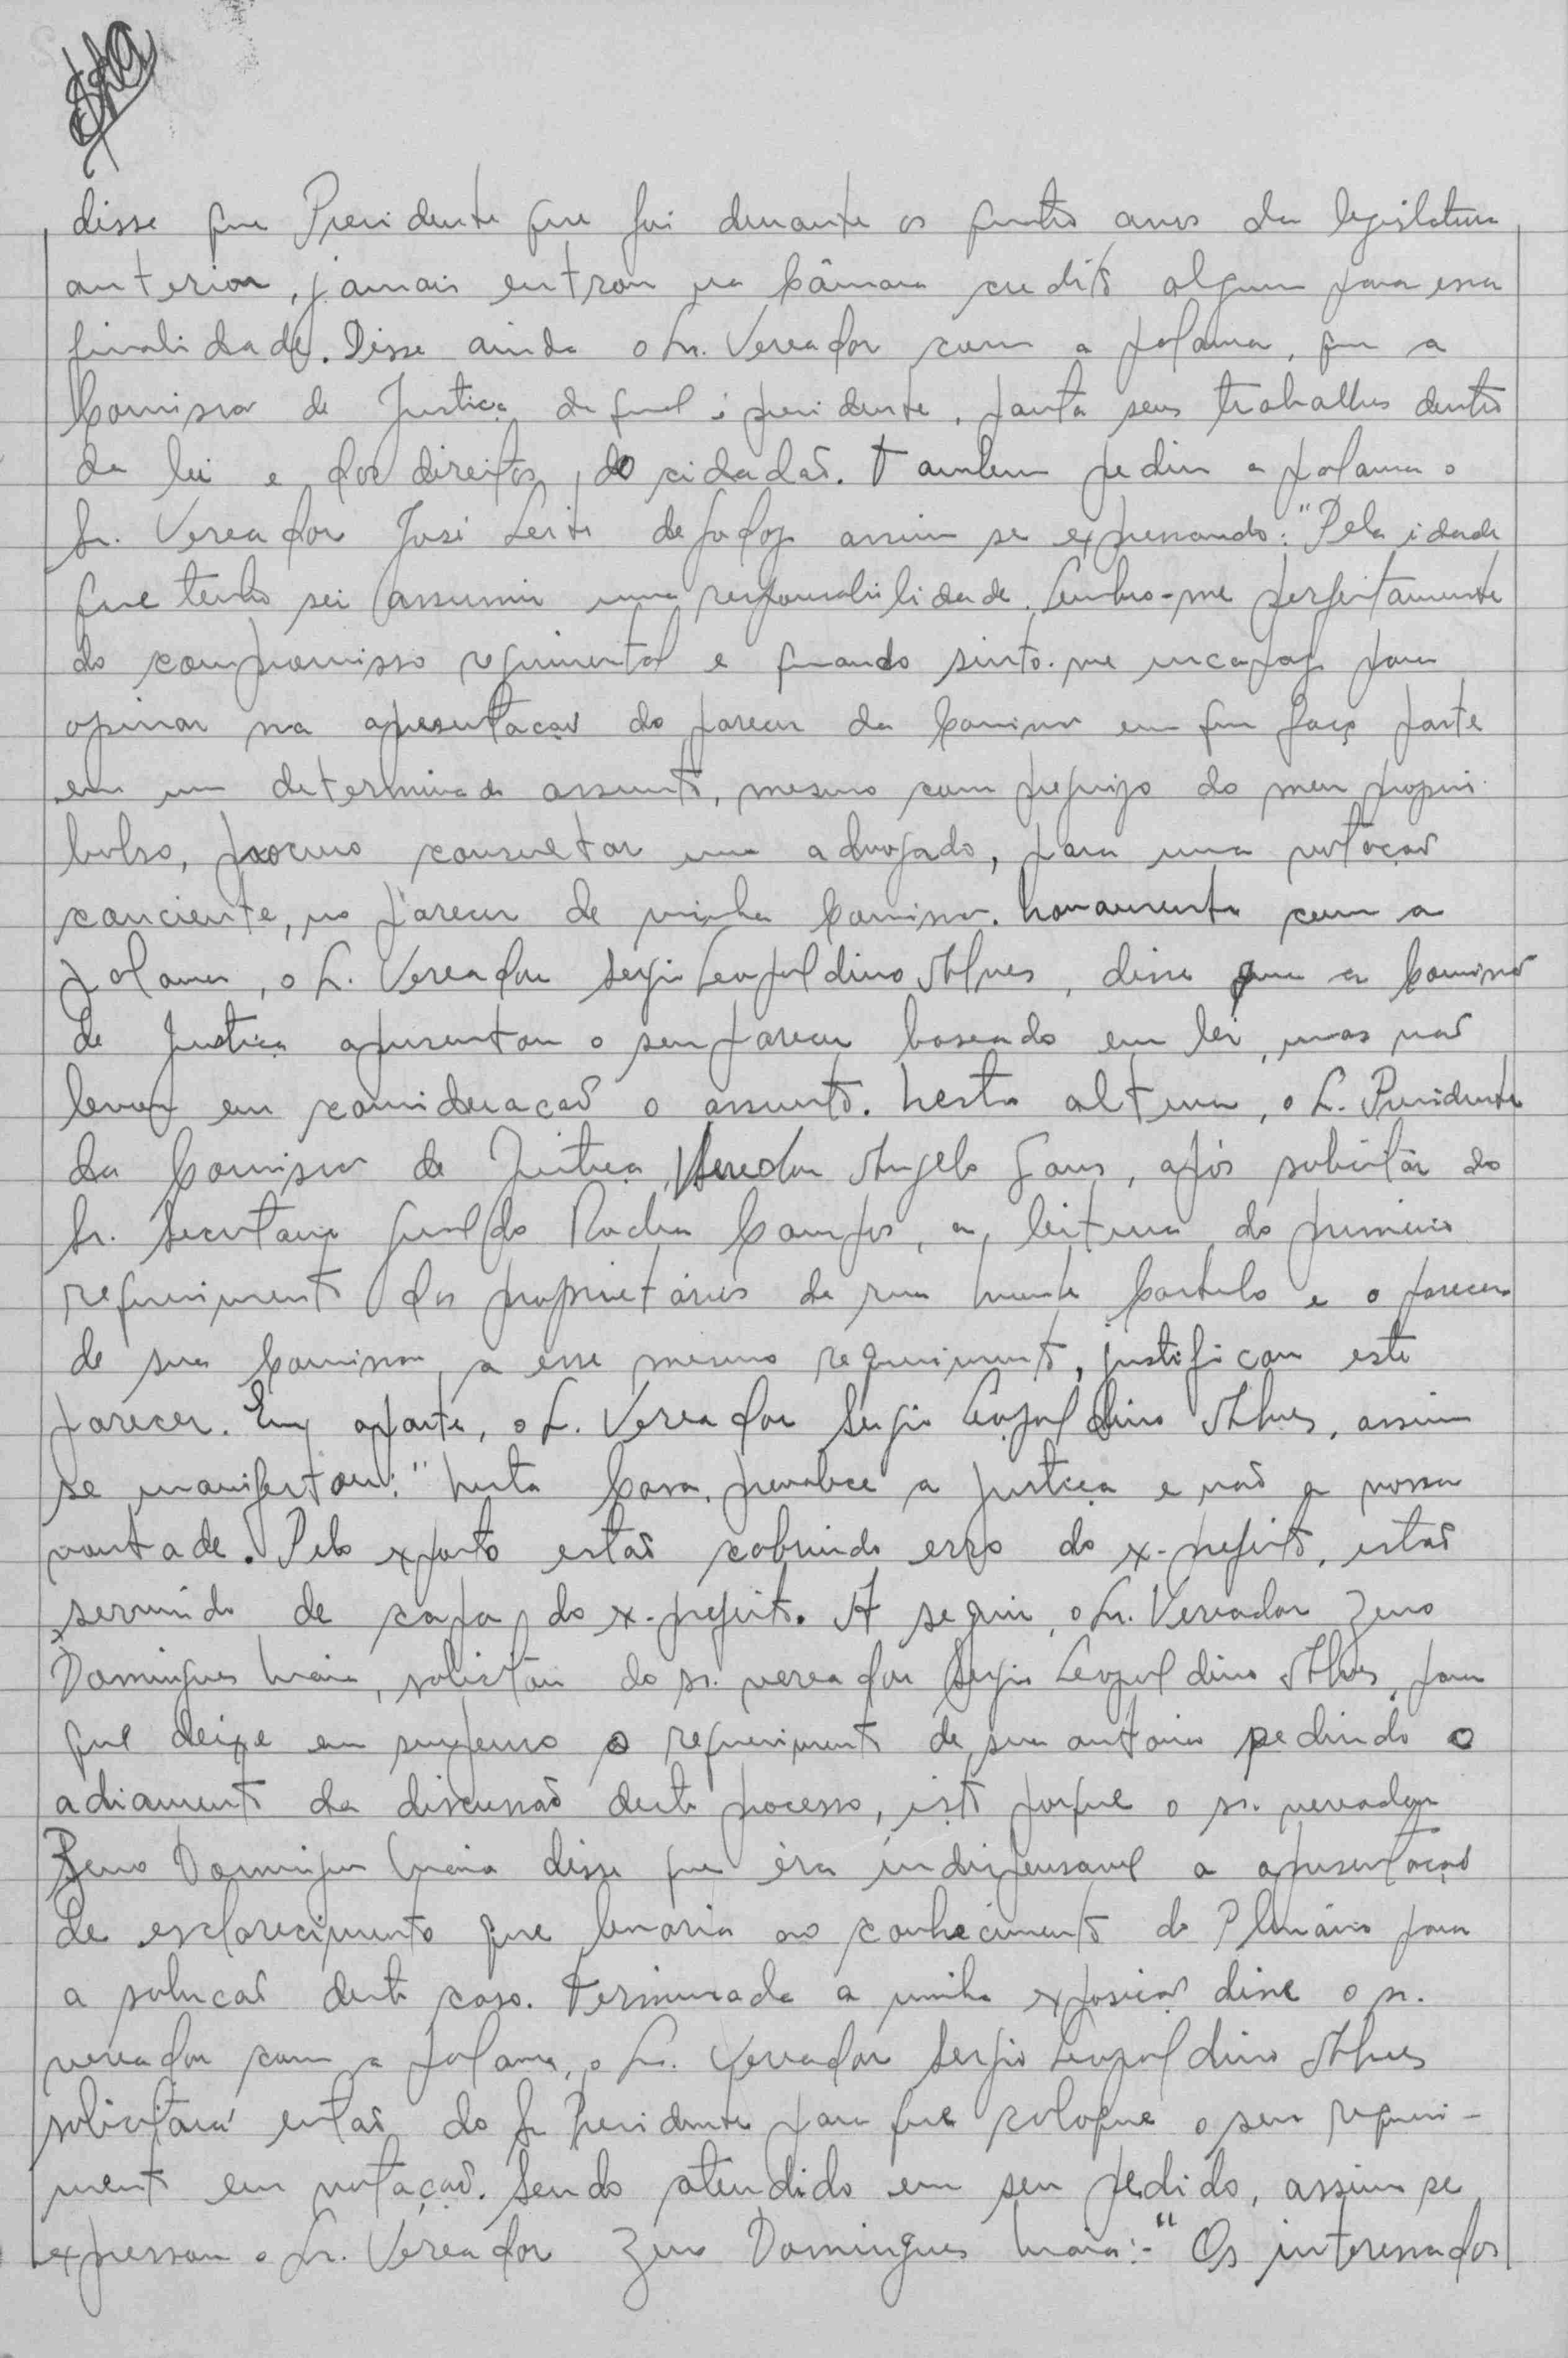 disse que Presidente que foi durante os quatro anos da legislatura
anterior, jamais entrou na Câmara credito algum para essa
finalidade. Disse ainda o Sr. Vereador com a palavra, que a
Comissão de Justiça da qual é presidente, pauta seus trabalhos dentro
da lei e dos direitos do cidadão. Tambem pediu a palavra o
Sr. Vereador José Leite de Godoy assim se expressando: "Pela idade
que tenho sei assumir uma responsabilidade. Lembro-me perfeitamente
do compromisso regimental e quando sinto-me incapaz para
opinar na apresentação do parecer da Comissão em que faço parte
em um determinado assunto, mesmo com prejuizo do meu proprio
bolso, procuro consultar um advogado, para uma votação
conciente, no parecer de minha Comissão. Novamente com a
palavra, o Sr. Vereador Sergio Leopoldino Alves, disse que a Comissão
de Justiça apresentou o seu parecer baseado em lei, mas não
levou em consideração o assunto. Nesta altura, o Sr. Presidente
da Comissão de Justiça, Vereador Angelo Gans, após solicitar do
Sr. Secretario Geraldo Rocha Campos, a leitura do primeiro
requerimento dos proprietários da rua Monte Castelo e o parecer
de sua Comissão a esse mesmo requerimento, justificou este
parecer. Em aparte, o Sr. Vereador Sergio Leopoldino Alves, assim
se manifestou: "Nesta Casa, prevalece a justiça e não a nossa
vontade. Pelo exposto estão cobrindo erro do ex-prefeito, estão
servindo de capa do ex-prefeito. A seguir, o Sr. Vereador Zeno
Domingues Maia, solicitou do sr. vereador Sergio Leopoldino Alves, para
que deixe em suspenso o requerimento de sua autoria pedindo o
adiamento da discussão deste processo, isto porque o sr. vereador
Zeno Domingues Maia disse que éra indispensavel a apresentação
de esclarecimento que levaria ao conhecimento do Plenário para
a solução deste caso. Terminada a minha exposição disse o sr.
vereador com a palavra, o Sr. Vereador Sergio Leopoldino Alves
solicitará então do Sr Presidente para que coloque o seu requeri-
mento em votação. Sendo atendido em seu pedido, assim se
expressou o Sr. Vereador Zeno Domingues Maia:-" Os interessados